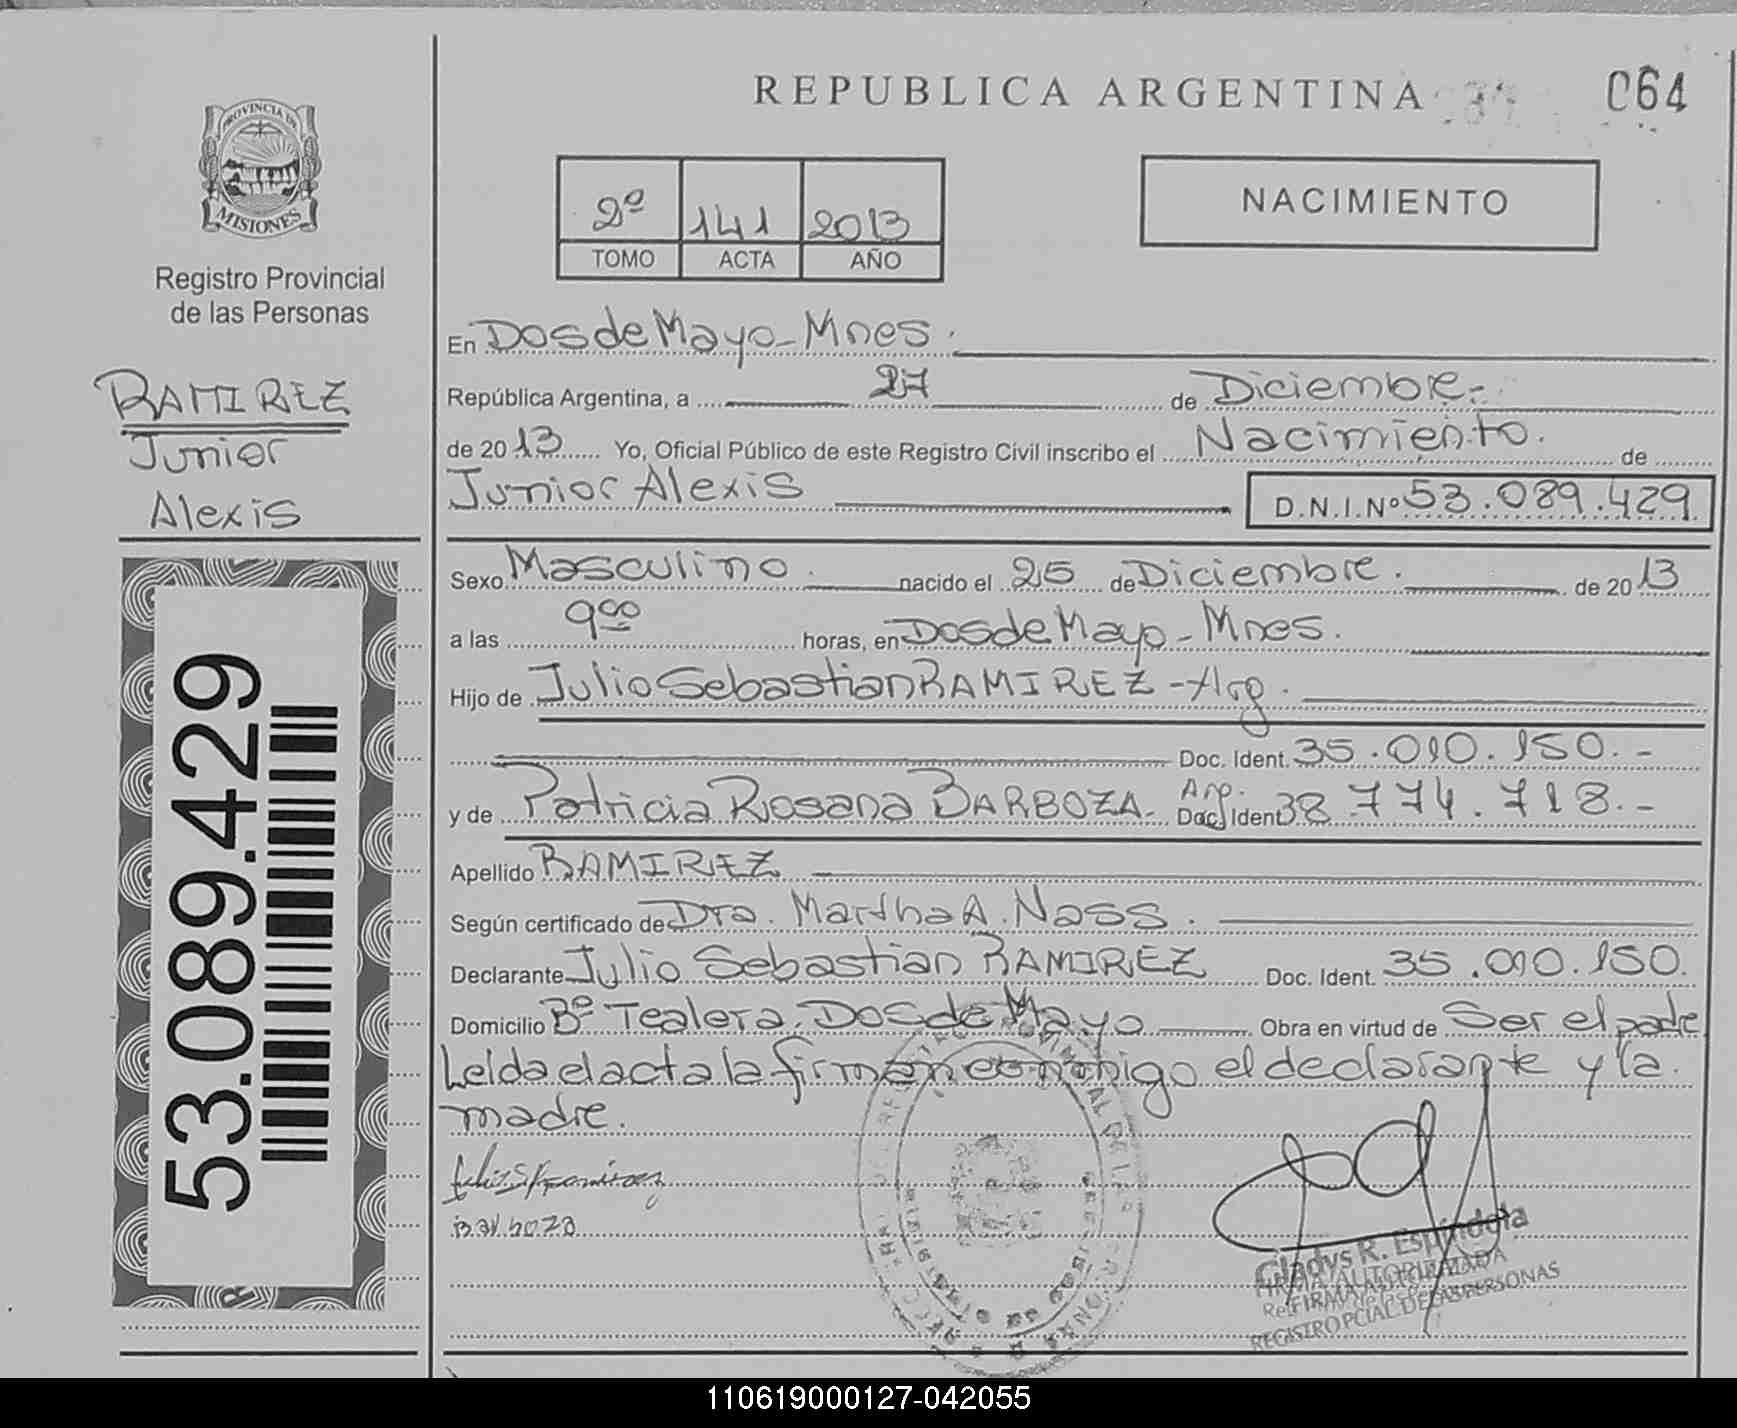 REPUBLICA ARGENTINA
064
PROVINCIA DE
MISIONES
Registro Provincial
de las Personas
RAMIREZ
Junior
Alexis
53.089.429
2º 141 2013
TOMO ACTA AÑO
NACIMIENTO
En Dos de Mayo - Mnes.
República Argentina, a 27 de Diciembre.-
de 2013 Yo, Oficial Público de este Registro Civil inscribo el Nacimiento. de
Junior Alexis D.N.I.Nº 53.089.429
Sexo Masculino. nacido el 25 de Diciembre. de 2013
a las 9:00 horas, en Dos de Mayo - Mnes.
Hijo de Julio Sebastian RAMIREZ - Arg.
Doc. Ident. 35.010.150.-
y de Patricia Rosana BARBOZA.- Arg. Doc. Ident 38.774.718.-
Apellido RAMIREZ
Según certificado de Dra. Martha A. Nass.
Declarante Julio Sebastian RAMIREZ Doc. Ident. 35.010.150.
Domicilio Bº Tealera. Dos de Mayo Obra en virtud de Ser el padre
Leida el acta la firman conmigo el declarante y la
madre.
Barboza
Gladys R. Espíndola
FIRMA AUTORIZADA
REGISTRO PCIAL DE LAS PERSONAS
110619000127-042055